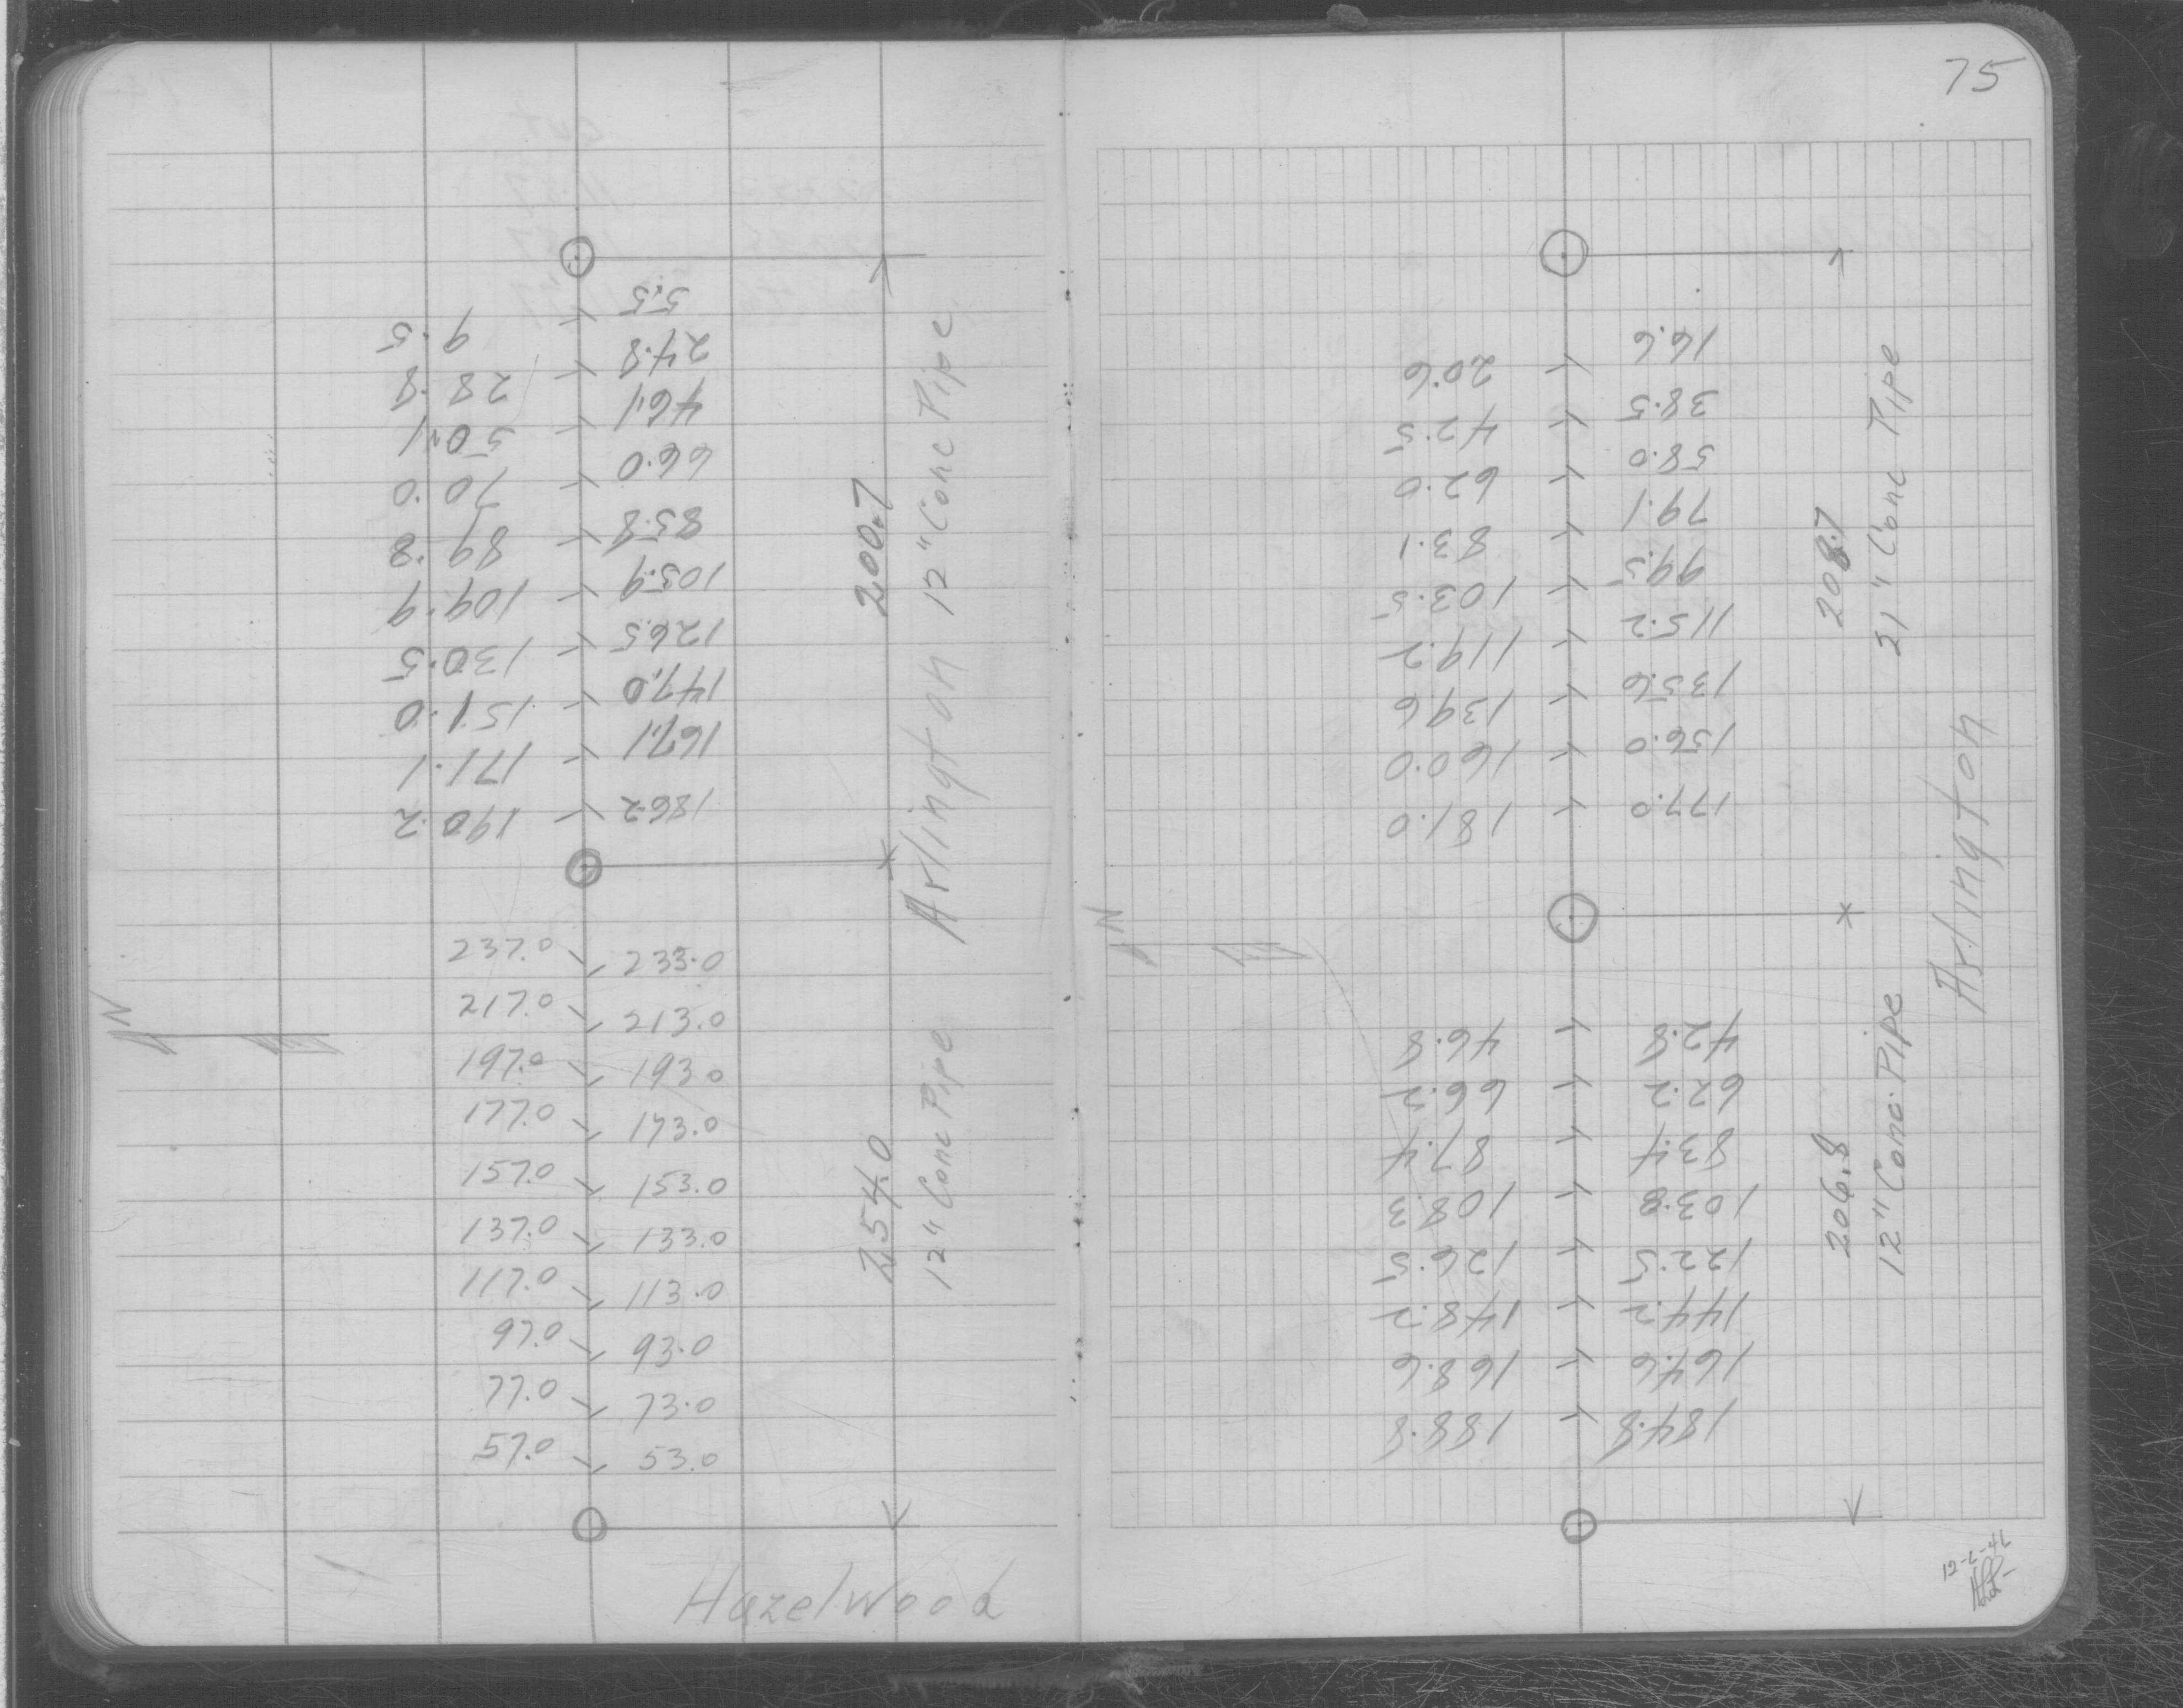 75
5.5
9.5
24.8
28.8
46.1
50.1
66.0
70.0
85.8
89.8
105.9
109.9
126.5
130.5
147.0
151.0
167.1
171.1
186.2
190.2
200.7
12" Conc Pipe
Arlington
N
237.0 233.0
217.0 213.0
197.0 193.0
177.0 173.0
157.0 153.0
137.0 133.0
117.0 113.0
97.0 93.0
77.0 73.0
57.0 53.0
254.0
12" Conc Pipe
Hazelwood
16.6
20.6
38.5
42.5
58.0
62.0
79.1
83.1
99.5
103.5
115.2
119.2
135.6
139.6
156.0
160.0
177.0
181.0
208.7
21" Conc Pipe
Arlington
N
42.8
46.8
62.2
66.2
83.4
87.4
103.8
108.3
122.5
126.5
144.2
148.2
164.6
168.6
184.8
188.8
206.8
12" Conc. Pipe